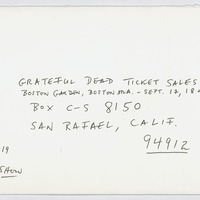 GRATEFUL DEAD TICKET SALES
BOSTON GARDEN, BOSTON MA. - SEPT. 17, 18
BOX C-S 8150
SAN RAFAEL, CALIF.
94912
19
SHOW